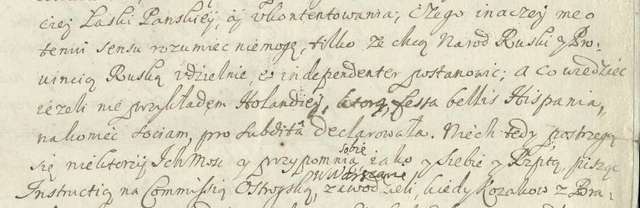 ciey Łaski Panskiey, ay Ukontentowania; Czego inaczey me o
temu sensu rozumiec niemogę, tilko że chcą Narod Ruski y Pro-
uincią Ruską zdzielnie et independenter postanowic; a co wiedziec
ieżeli nie przykładem Holandiey, ktorą fessa bellis Hispania,
nakoniec sociam, pro subdita declarowała. Niech tedy postrzegą
się niektorzy Ich Mosc y przypomnią sobie iako y siebie y Rzptą pisząc
Instructią na Commissią Ostrogską, w Warszawie zawodzieli, kiedy Kozakow z Bra-